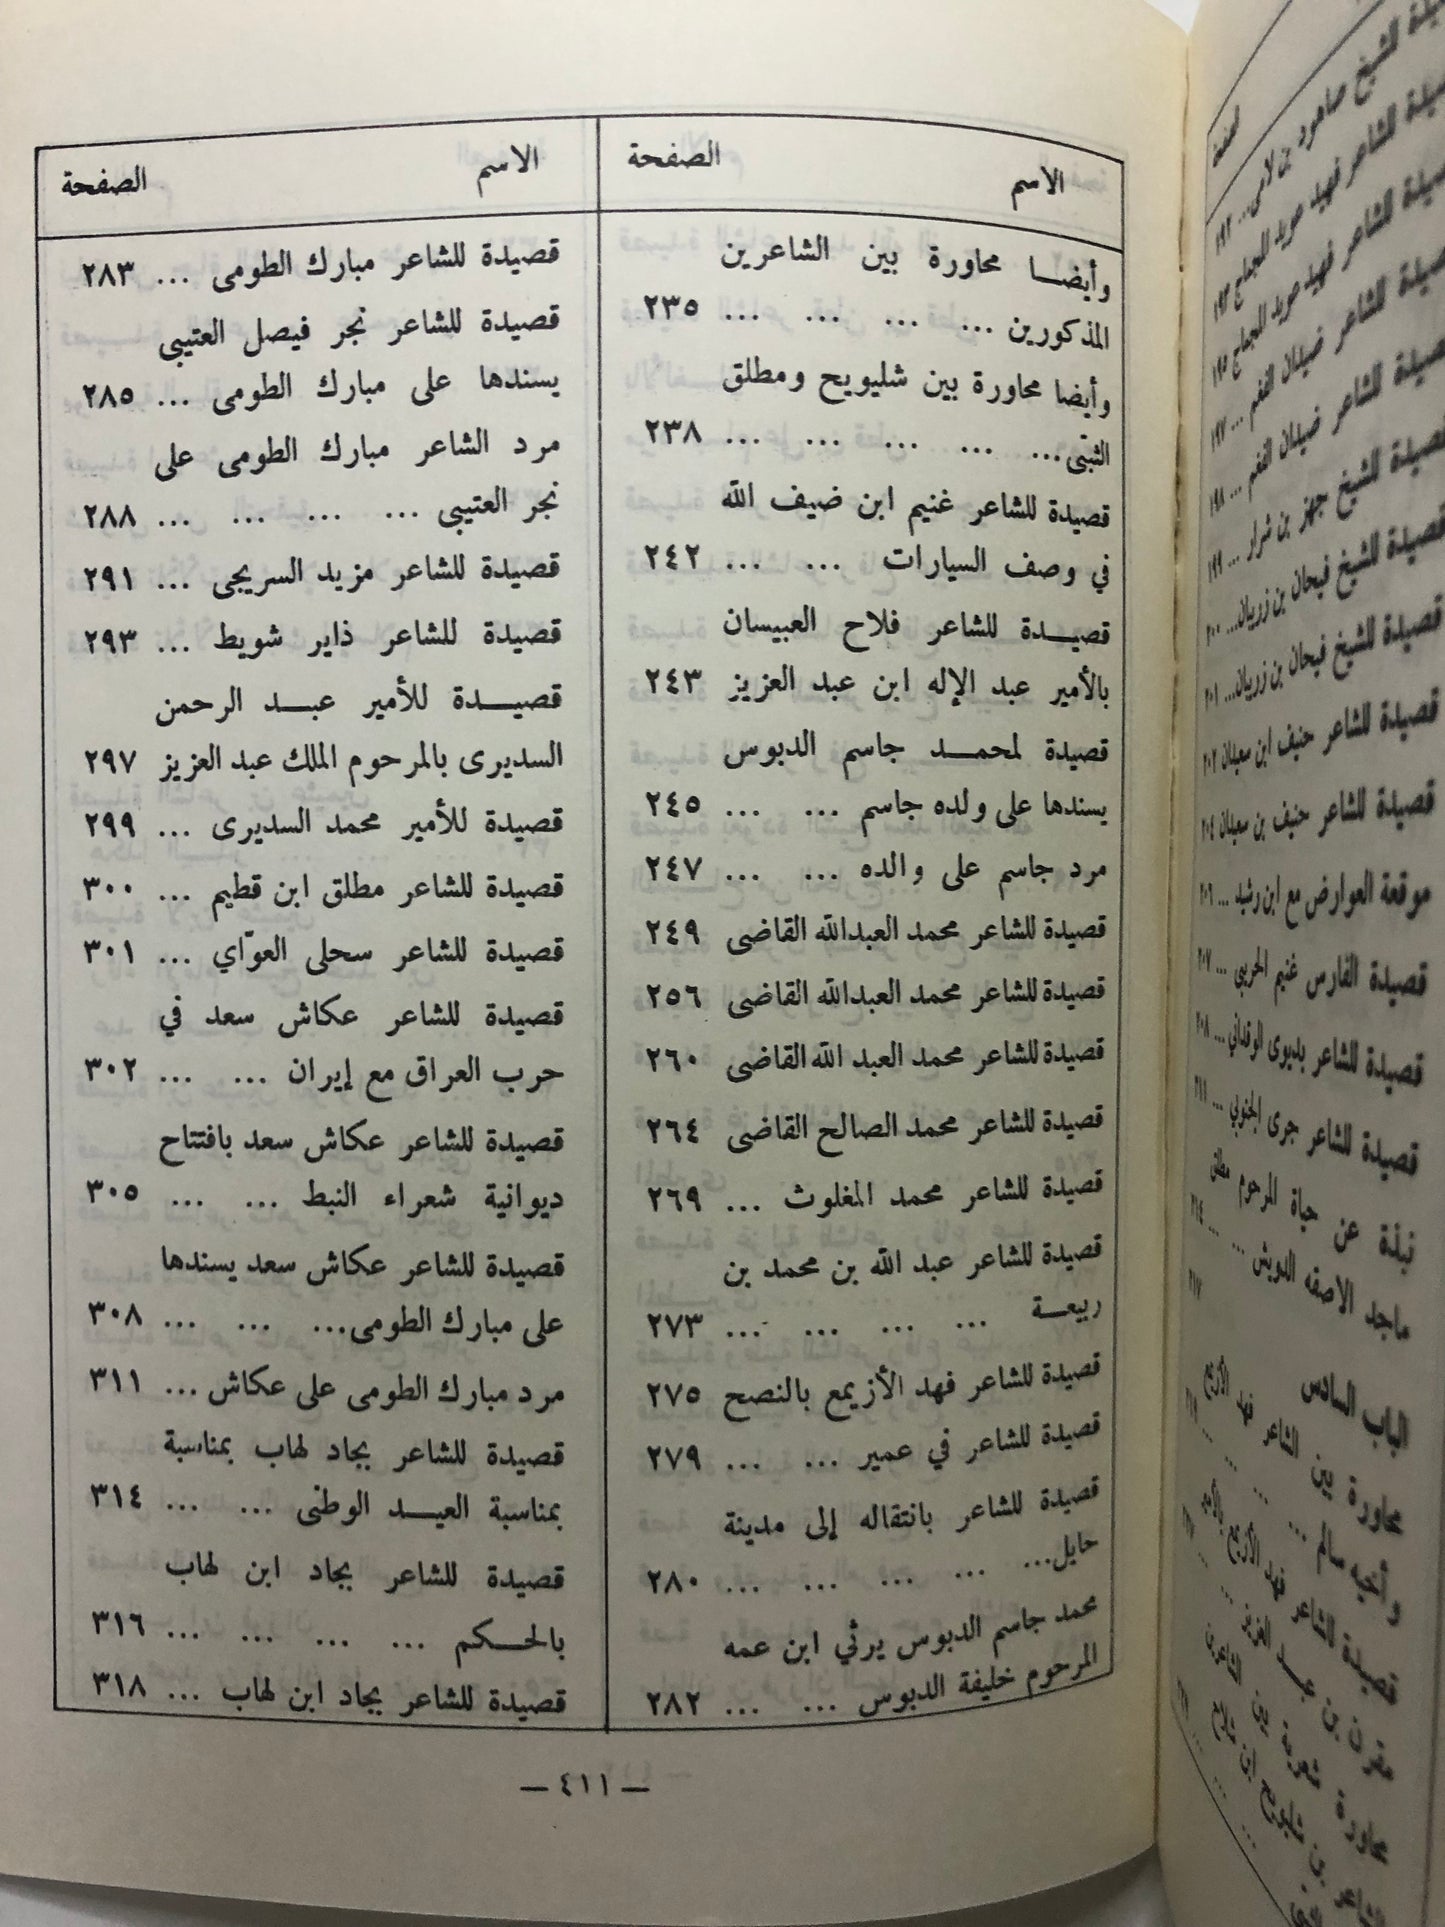 الاسم الصفحة
وأيضـــا محاورة بين الشاعرين
المذكورين ... ... ... ... ٢٣٥
وأيضا محاورة بين شليويح ومطلق
الثبتى... ... ... ... ... ٢٣٨
قصيدة للشاعر غنيم ابن ضيف الله
في وصف السيارات ... ... ٢٤٢
قصيـــدة للشاعر فلاح العبيسان
بالأمير عبد الإله ابن عبد العزيز ٢٤٣
قصيدة لمحمـــد جاسم الدبوس
يسندها على ولده جاسم ... ... ٢٤٥
مرد جاسم على والده ... ... ٢٤٧
قصيدة للشاعر محمد العبدالله القاضى ٢٤٩
قصيدة للشاعر محمد العبدالله القاضى ٢٥٦
قصيدة للشاعر محمد العبد الله القاضى ٢٦٠
قصيدة للشاعر محمد الصالح القاضى ٢٦٤
قصيدة للشاعر محمد المغلوث ... ٢٦٩
قصيدة للشاعر عبد الله بن محمد بن
ربيعـــة ... ... ... ... ٢٧٣
قصيدة للشاعر فهد الأزيمع بالنصح ٢٧٥
قصيدة للشاعر في عمير ... ... ٢٧٩
قصيدة للشاعر بانتقاله إلى مدينة
حايل... ... ... ... ... ٢٨٠
محمد جاسم الدبوس يرثي ابن عمه
المرحوم خليفة الدبوس ... ... ٢٨٢
الاسم الصفحة
قصيدة للشاعر مبارك الطومى ... ٢٨٣
قصيدة للشاعر نجر فيصل العتيبى
يسندها على مبارك الطومى ... ٢٨٥
مرد الشاعر مبارك الطومى على
نجر العتيبى ... ... ... ... ٢٨٨
قصيدة للشاعر مزيد السريجى ... ٢٩١
قصيدة للشاعر ذاير شويط ... ٢٩٣
قصيـــدة للأمير عبـــد الرحمن
السديرى بالمرحوم الملك عبد العزيز ٢٩٧
قصيدة للأمير محمد السديرى ... ٢٩٩
قصيدة للشاعر مطلق ابن قطيم ... ٣٠٠
قصيدة للشاعر سحلى العوّاي ... ٣٠١
قصيدة للشاعر عكاش سعد في
حرب العراق مع إيران ... ... ٣٠٢
قصيدة للشاعر عكاش سعد بافتتاح
ديوانية شعراء النبط ... ... ٣٠٥
قصيدة للشاعر عكاش سعد يسندها
على مبارك الطومى... ... ... ٣٠٨
مرد مبارك الطومى على عكاش ... ٣١١
قصيدة للشاعر بجاد لهاب بمناسبة
بمناسبة العيـــد الوطنى ... ... ٣١٤
قصيدة للشاعر بجاد ابن لهاب
بالحـــكم ... ... ... ... ٣١٦
قصيدة للشاعر بجاد ابن لهاب ... ٣١٨
— ٤١١ —
قصيدة للشاعر ضيدان الفغم ... ١٩٧
قصيدة للشاعر ضيدان الفغم ... ١٩٨
قصيدة للشيخ جهز بن شرار ... ١٩٩
قصيدة للشيخ فيحان بن زريبان... ٢٠٠
قصيدة للشيخ فيحان بن زريبان... ٢٠١
قصيدة للشاعر حنيف ابن سعيدان ٢٠٢
قصيدة للشاعر حنيف بن سعيدان ٢٠٤
موقعة العوارض مع ابن رشيد ... ٢٠٦
قصيدة الفارس غنيم الحربي ... ٢٠٧
قصيدة للشاعر بديوى الوقداني ... ٢٠٨
قصيدة للشاعر جرى الجنوبي ... ٢١١
نبذة عن حياة المرحوم مطلق
ماجد الاصقه الدويش ... ... ٢١٤
٢١٧
الباب السادس
محاورة بين الشاعر فهد الأزيمع
وأخيه سالم ... ...
قصيدة للشاعر فهد الأزيمع بالأمير
مقرن بن عبـــد العزيز ...
محاورة شعرية بين الشاعرين